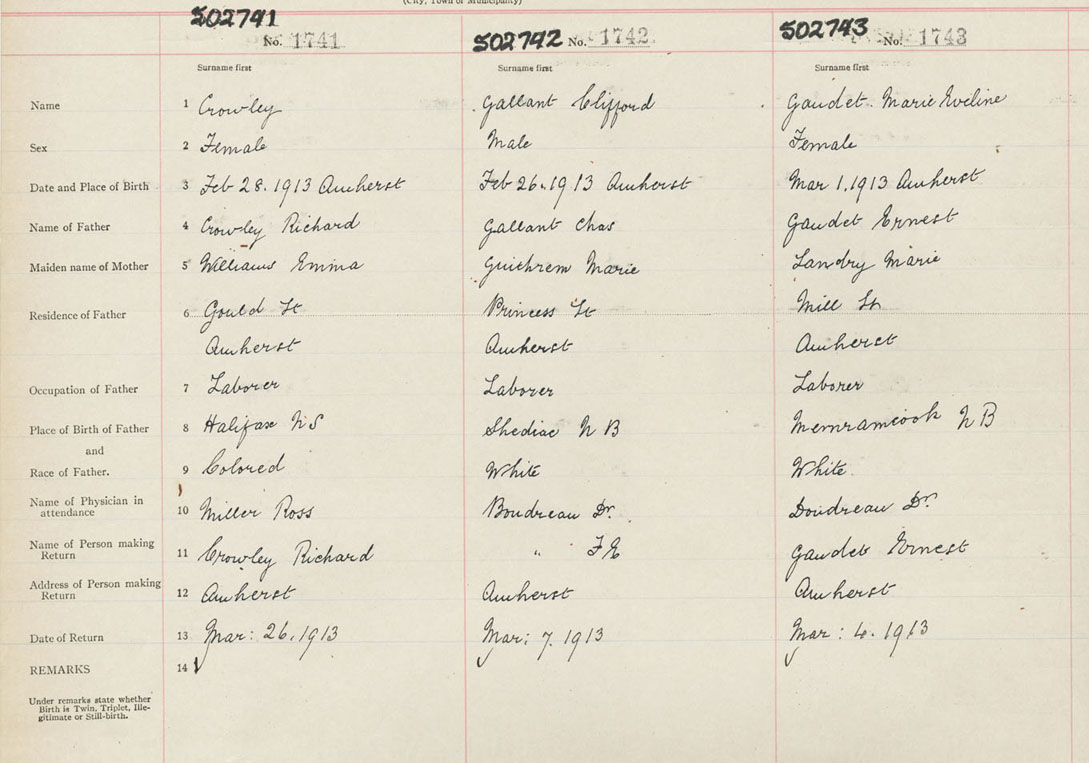 (City, Town or Municipality)
502741 502742 502743
No. 1741 No. 1742 No. 1743
Surname first Surname first Surname first
Name 1 Crowley Gallant Clifford Gaudet Marie Eveline
Sex 2 Female Male Female
Date and Place of Birth 3 Feb 28. 1913 Amherst Feb 26. 1913 Amherst Mar 1. 1913 Amherst
Name of Father 4 Crowley Richard Gallant Chas Gaudet Ernest
Maiden name of Mother 5 Williams Emma Marie Landry Marie
Residence of Father 6 Gould St Princess St Mill St
Amherst Amherst Amherst
Occupation of Father 7 Laborer Laborer Laborer
Place of Birth of Father 8 Halifax N S Shediac N B Memramcook N B
and
Race of Father. 9 Colored White White
Name of Physician in
attendance 10 Miller Ross Boudreau Dr. Doudreau Dr.
Name of Person making
Return 11 Crowley Richard " F E Gaudet Ernest
Address of Person making
Return 12 Amherst Amherst Amherst
Date of Return 13 Mar: 26. 1913 Mar: 7. 1913 Mar: 4. 1913
REMARKS 14
Under remarks state whether
Birth is Twin, Triplet, Ille-
gitimate or Still-birth.